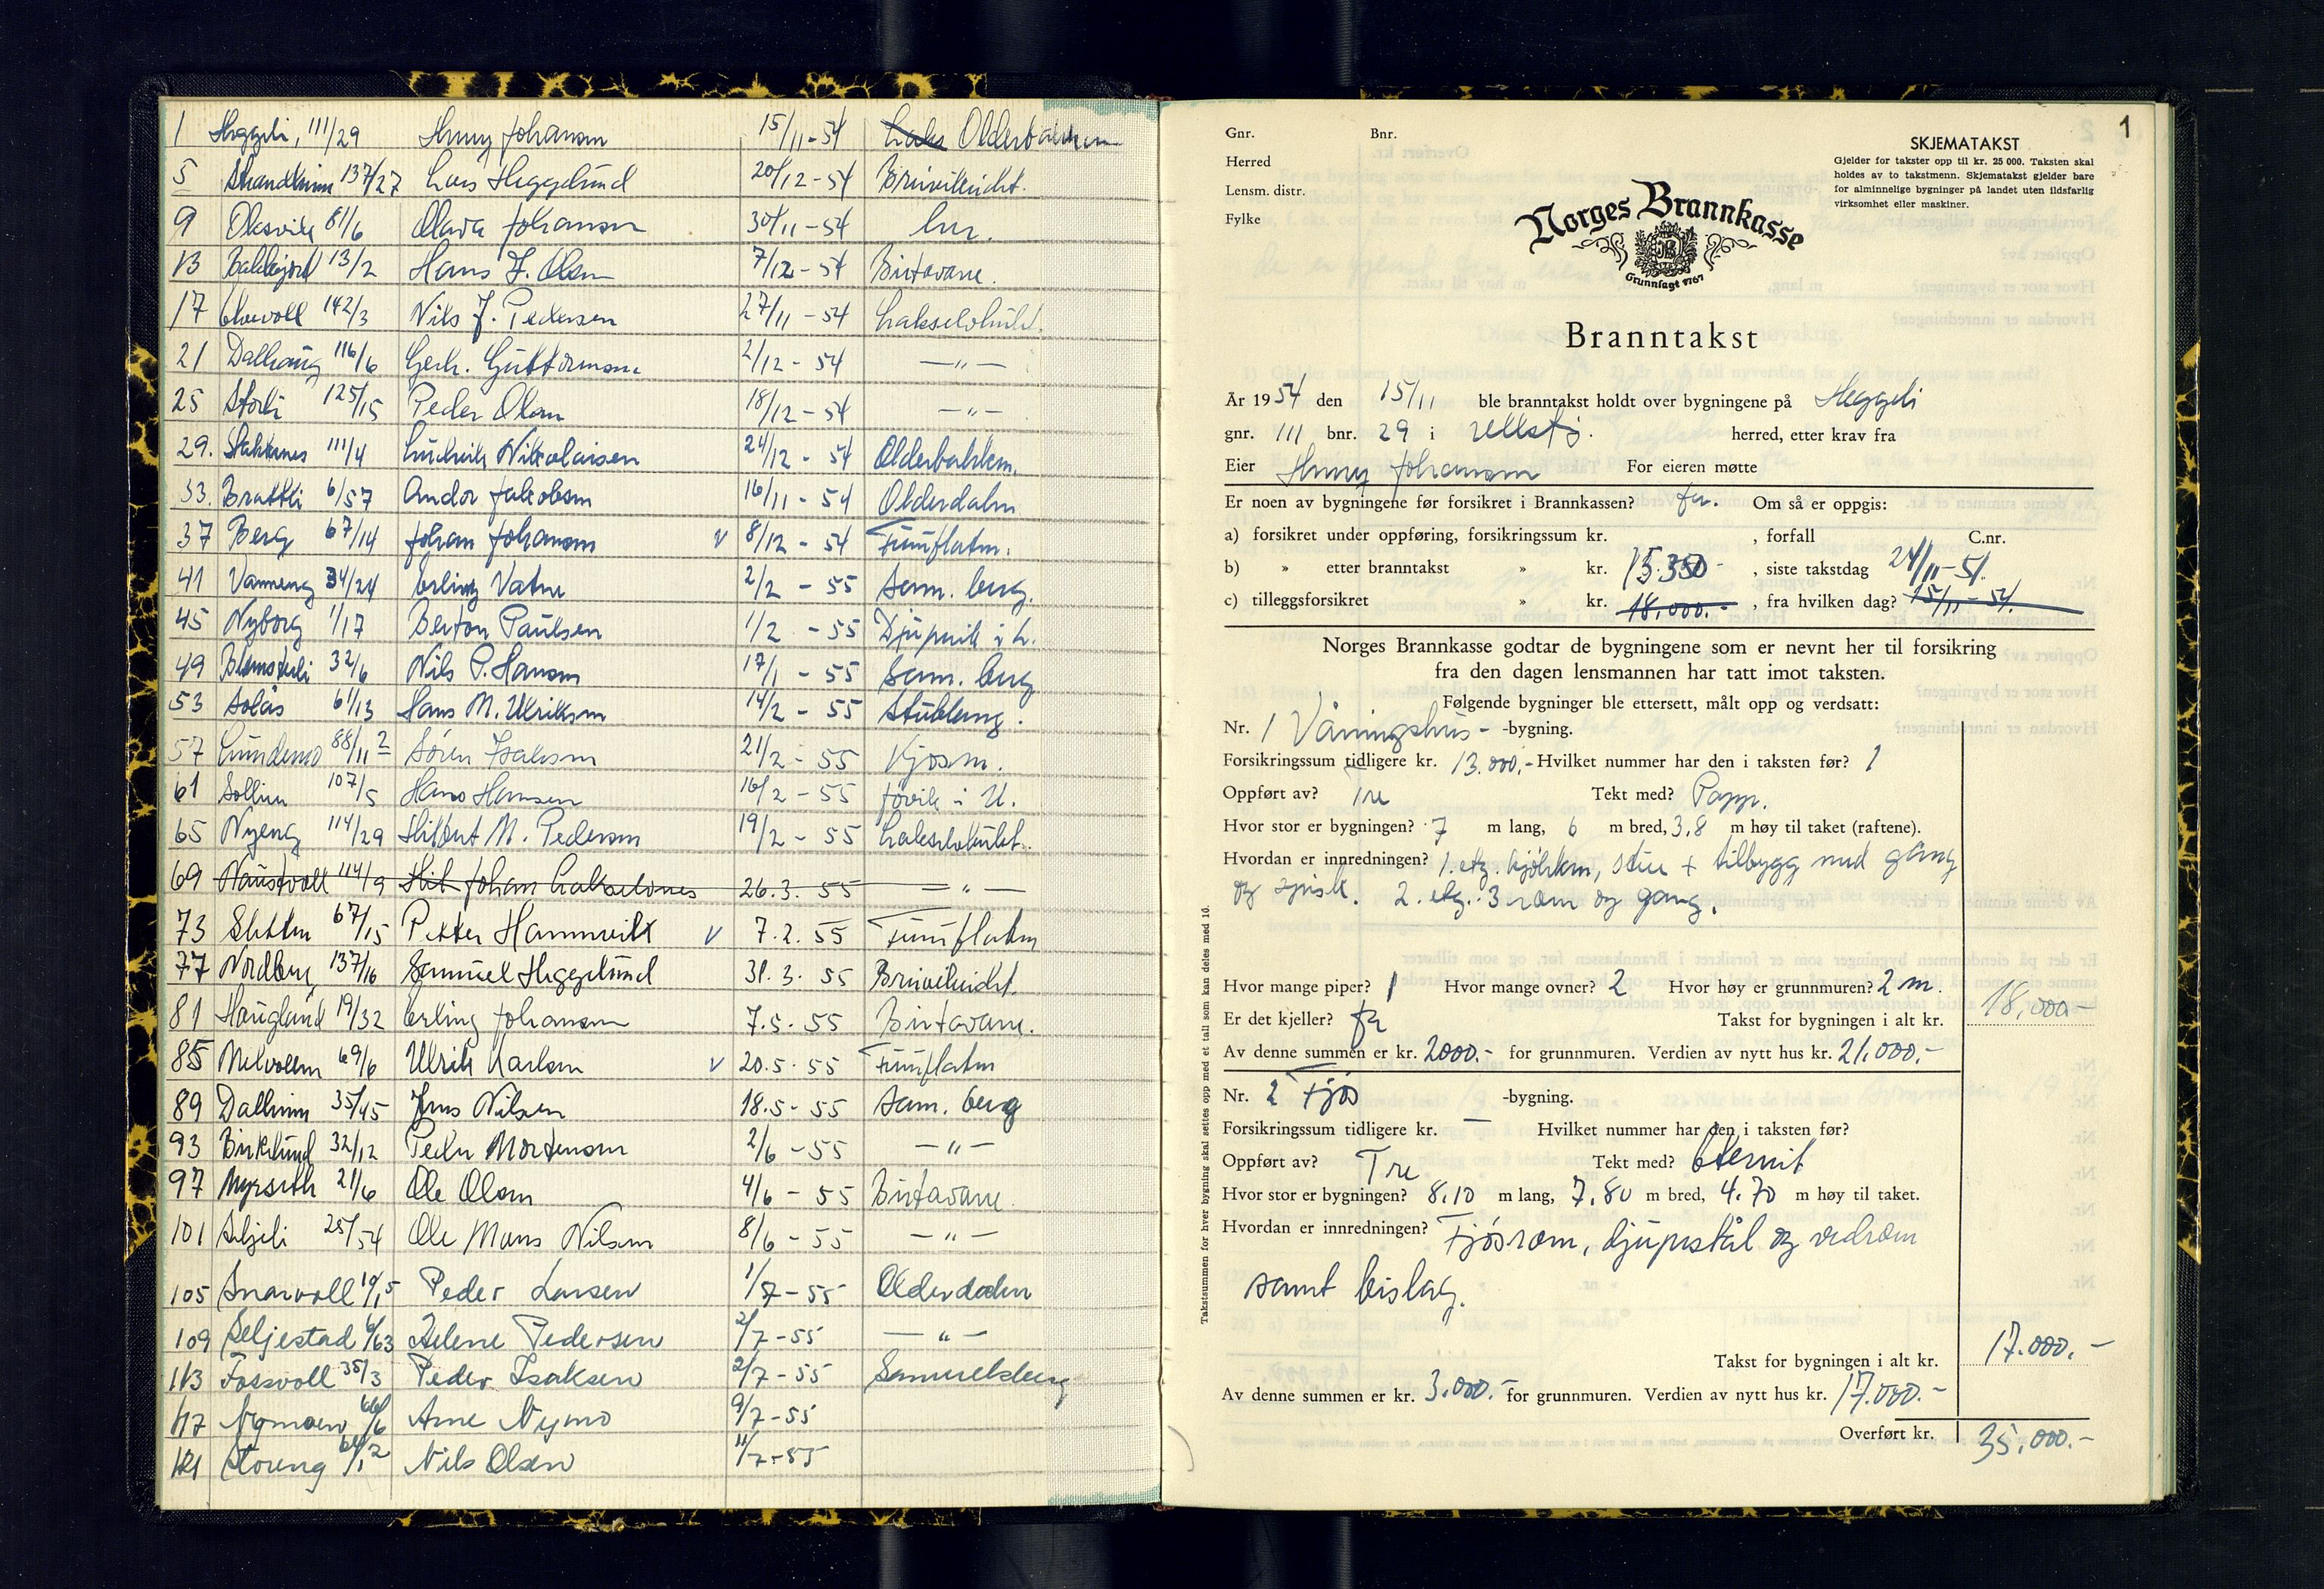 1 Heggeli, 111/29 Henry Johansen 15/11-54 Olderbakken
5 Strandheim 137/27 Lars Heggelund 20/12-54
9 Oksvik 81/6 Olava Johansen 30/11-54
13 13/2 Hans J. Olsen 7/12-54 Birtavarre.
17 142/3 Nils J. Pedersen 27/11-54
21 Dalhaug 116/6 Gerh. Guttormsen 2/12-54 —"—
25 Storli 125/15 Peder Olsen 18/12-54 —"—
29. 111/4 Ludvik Nikolaisen 24/12-54 Olderbakken.
33. Brattli 6/57 Andor Jakobsen 16/11-54 Olderdalen
37 Berg 67/14 Johan Johansen v 8/12-54
41 34/24 Erling Vatne 2/2-55 Sam. berg.
45 Nyborg 1/17 Berton Paulsen 1/2-55 Djupvik i L.
49 32/6 Nils P. Hansen 17/1-55 Sam. berg
53 Solås 61/13 Hans M. Ulriksen 14/2-55
57 Lundemo 88/11 2 Sören Isaksen 21/2-55 Kjosen.
61 107/5 Hans Hansen 16/2-55 Jövik i U.
65 Nyeng 114/29 Hilbert M. Pedersen 19/2-55
69 Naustvoll 114/9 Johan Lakselvnes 26.3.55 —"—
73 Sletten 67/15 Petter Hamnvik v 7.2.55
77 Nordberg 137/16 Samuel Heggelund 31.3.55
81 Haugland 19/32 Erling Johansen 7.5.55 Birtavarre.
85 Melvollen 69/6 Ulrik Karlsen v 20.5.55
89 Dalheim 35/45 Jens Nilsen 18.5-55 Sam. berg
93 Birkelund 32/12 Peder Mortensen 2/6-55 —"—
97 Myrseth 21/6 Ole Olsen 4/6-55 Birtavarre
101 Seljeli 25/54 Ole Mons Nilsen 8/6-55 —"—
105 Snarvoll Peder Larsen 1/7-55 Olderdalen
109 Seljestad 6/63 Helene Pedersen 2/7-55 —"—
113 Fossvoll 35/3 Peder Isaksen 2/7-55 Samuelsberg
117 Nymoen 66/6 Arne Nymo 9/7-55
121 Storeng Nils Olsen 11/7-55
1
Gnr. Bnr.
Herred
Lensm. distr.
Fylke
SKJEMATAKST
Gjelder for takster opp til kr. 25 000. Taksten skal
holdes av to takstmenn. Skjematakst gjelder bare
for alminnelige bygninger på landet uten ildsfarlig
virksomhet eller maskiner.
Norges Brannkasse
Grunnlagt 1767
Branntakst
År 1954 den 15/11 ble branntakst holdt over bygningene på Heggeli
gnr. 111 bnr. 29 i Ullsfj. herred, etter krav fra
Eier Henry Johansen For eieren møtte
Er noen av bygningene før forsikret i Brannkassen? Ja. Om så er oppgis:
a) forsikret under oppføring, forsikringssum kr. , forfall C.nr.
b) » etter branntakst » kr. 15.350- , siste takstdag 24/11-51.
c) tilleggsforsikret » kr. 18.000.- , fra hvilken dag? 15/11-54.
Norges Brannkasse godtar de bygningene som er nevnt her til forsikring
fra den dagen lensmannen har tatt imot taksten.
Følgende bygninger ble ettersett, målt opp og verdsatt:
Nr. 1 Våningshus- -bygning.
Forsikringssum tidligere kr. 13.000,- Hvilket nummer har den i taksten før? 1
Oppført av? Tre Tekt med? Papp.
Hvor stor er bygningen? 7 m lang, 6 m bred, 3,8 m høy til taket (raftene).
Hvordan er innredningen? 1. etg. kjökken, stue + tilbygg med gang
og spisk. 2. etg. 3 rom og gang.
Hvor mange piper? 1 Hvor mange ovner? 2 Hvor høy er grunnmuren? 2 m.
Er det kjeller? Ja Takst for bygningen i alt kr. 18,000-
Av denne summen er kr. 2000.- for grunnmuren. Verdien av nytt hus kr. 21.000.-
Nr. 2 Fjös -bygning.
Forsikringssum tidligere kr. — Hvilket nummer har den i taksten før?
Oppført av? Tre Tekt med? Eternit
Hvor stor er bygningen? 8.10 m lang, 7,80 m bred, 4.70 m høy til taket.
Hvordan er innredningen? Fjösrom, djupstål og vedrom
samt bislag.
Takst for bygningen i alt kr. 17.000.-
Av denne summen er kr. 3.000.- for grunnmuren. Verdien av nytt hus kr. 17.000.-
Overført kr. 35.000.-
Takstsummen for hver bygning skal settes opp med et tall som kan deles med 10.